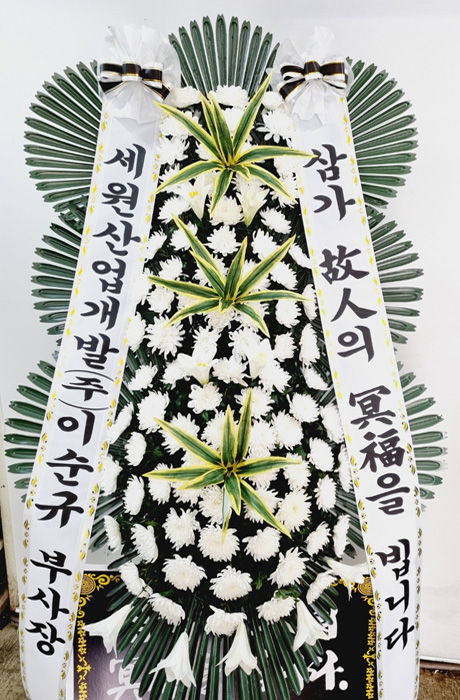 세원산업개발(주)이순규 부사장
삼가 故人의 冥福을 빕니다